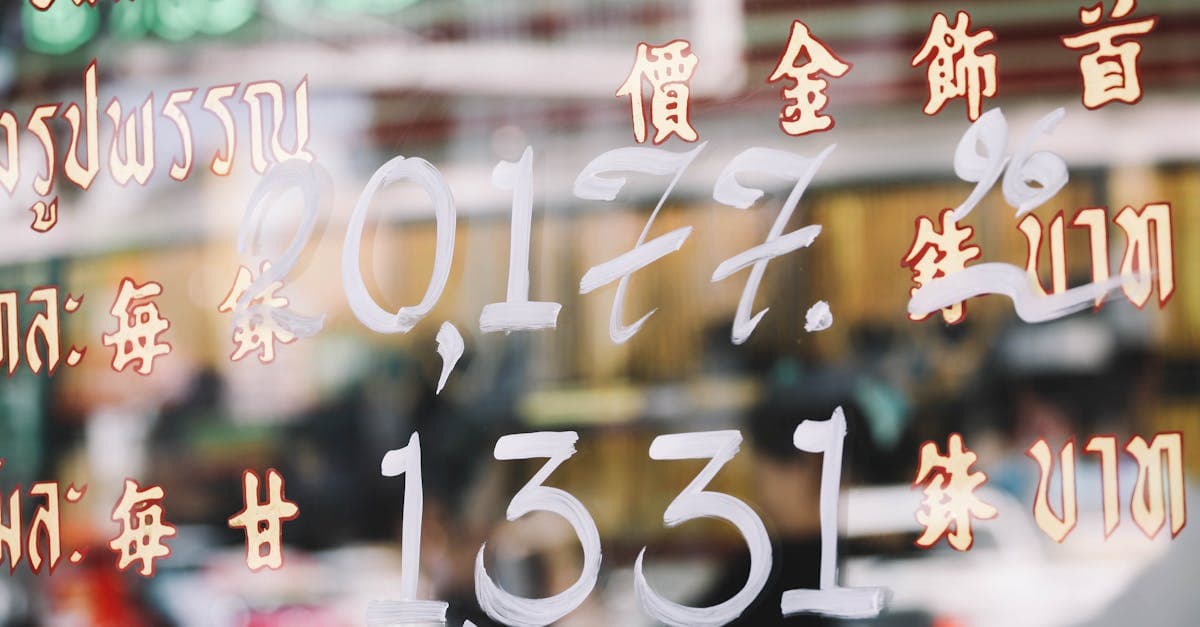 รูปพรรณ 價金飾首
20,177.96
ละ 每銖 銖 บาท
1,331
ละ 每甘 銖 บาท